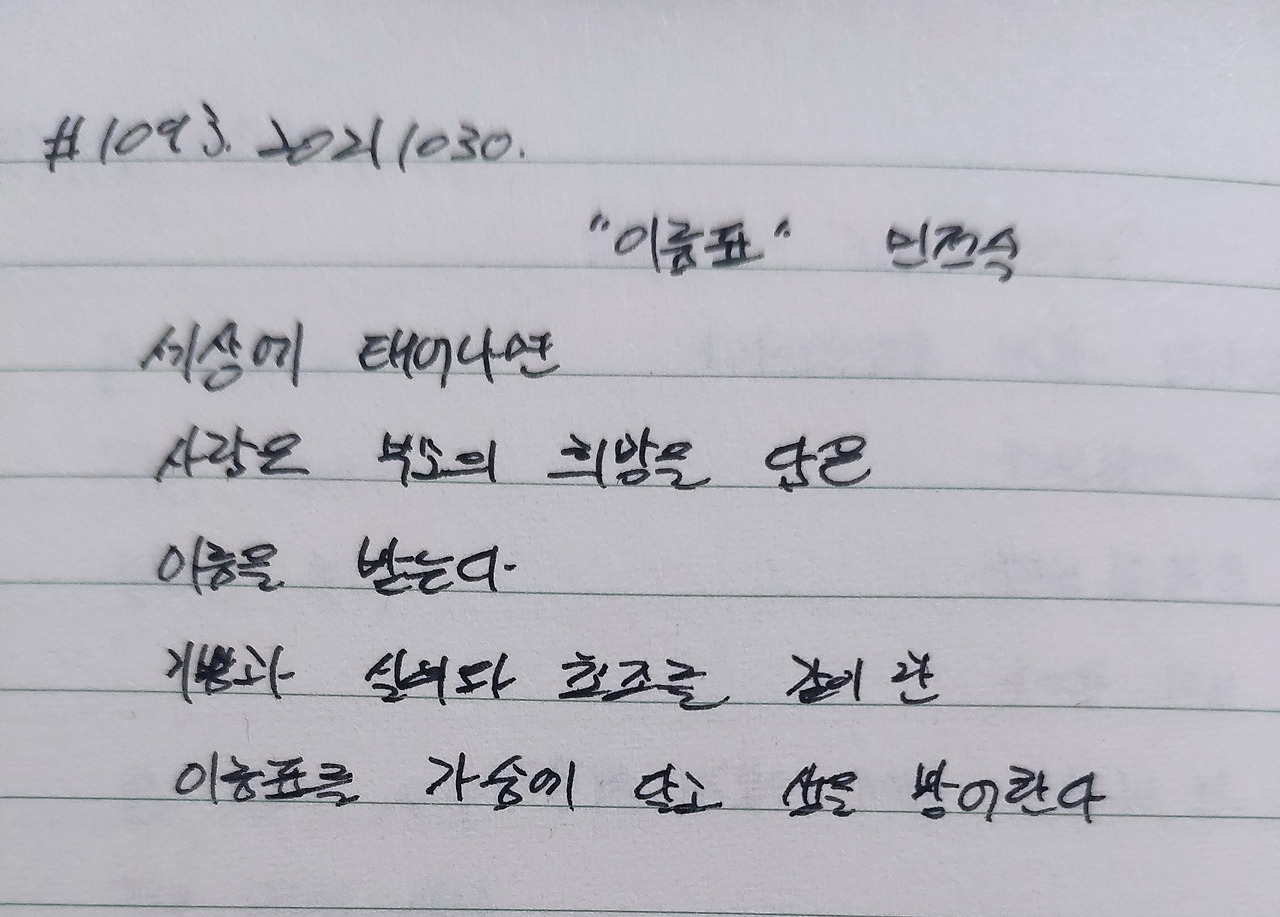 #1093. 20211030.
"이름표" 민전식
세상에 태어나면
사람은 부모의 희망을 담은
이름을 받는다.
기쁨과 실허다 희조를 같이 한
이름표를 가슴에 달고 삶을 방어한다